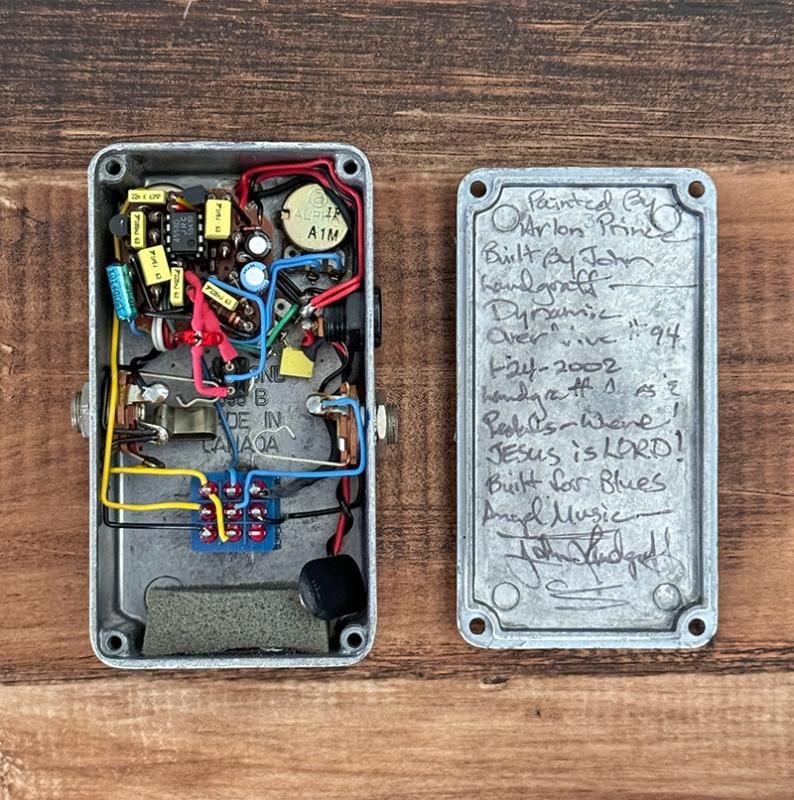 ALPHA
A1M
4558D
JRC
MADE IN
CANADA
Painted By
Arlon Prince
Built By John
Landgraff
Dynamic
Overdrive # 94
1-24-2002
Landgraff
Pedals - Weve!
JESUS is LORD!
Built for Blues
Angel Music
John Landgraff